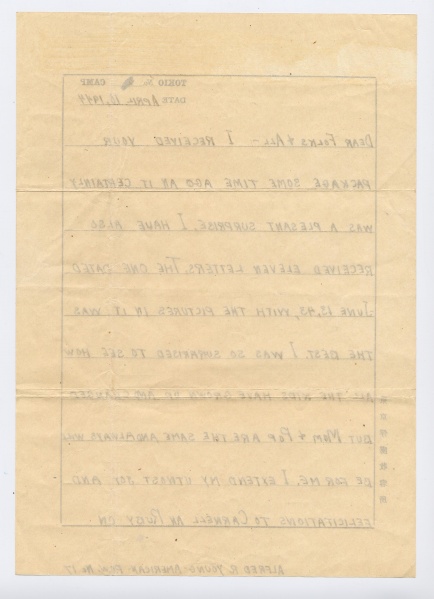 TOKIO CAMP
DATE APRIL 12, 1944
DEAR FOLKS & ALL — I RECEIVED YOUR
PACKAGE SOME TIME AGO AN IT CERTAINLY
WAS A PLESANT SURPRISE. I HAVE ALSO
RECEIVED ELEVEN LETTERS. THE ONE DATED
JUNE 13, 43, WITH THE PICTURES IN IT WAS
THE BEST. I WAS SO SURPRISED TO SEE HOW
ALL THE KIDS HAVE GROWN UP AND CHANGED
BUT MOM & POP ARE THE SAME AND ALWAYS WILL
BE FOR ME. I EXTEND MY UTMOST JOY AND
FELICITATIONS TO CARMELL AN RUDY ON
ALFRED R. YOUNG AMERICAN